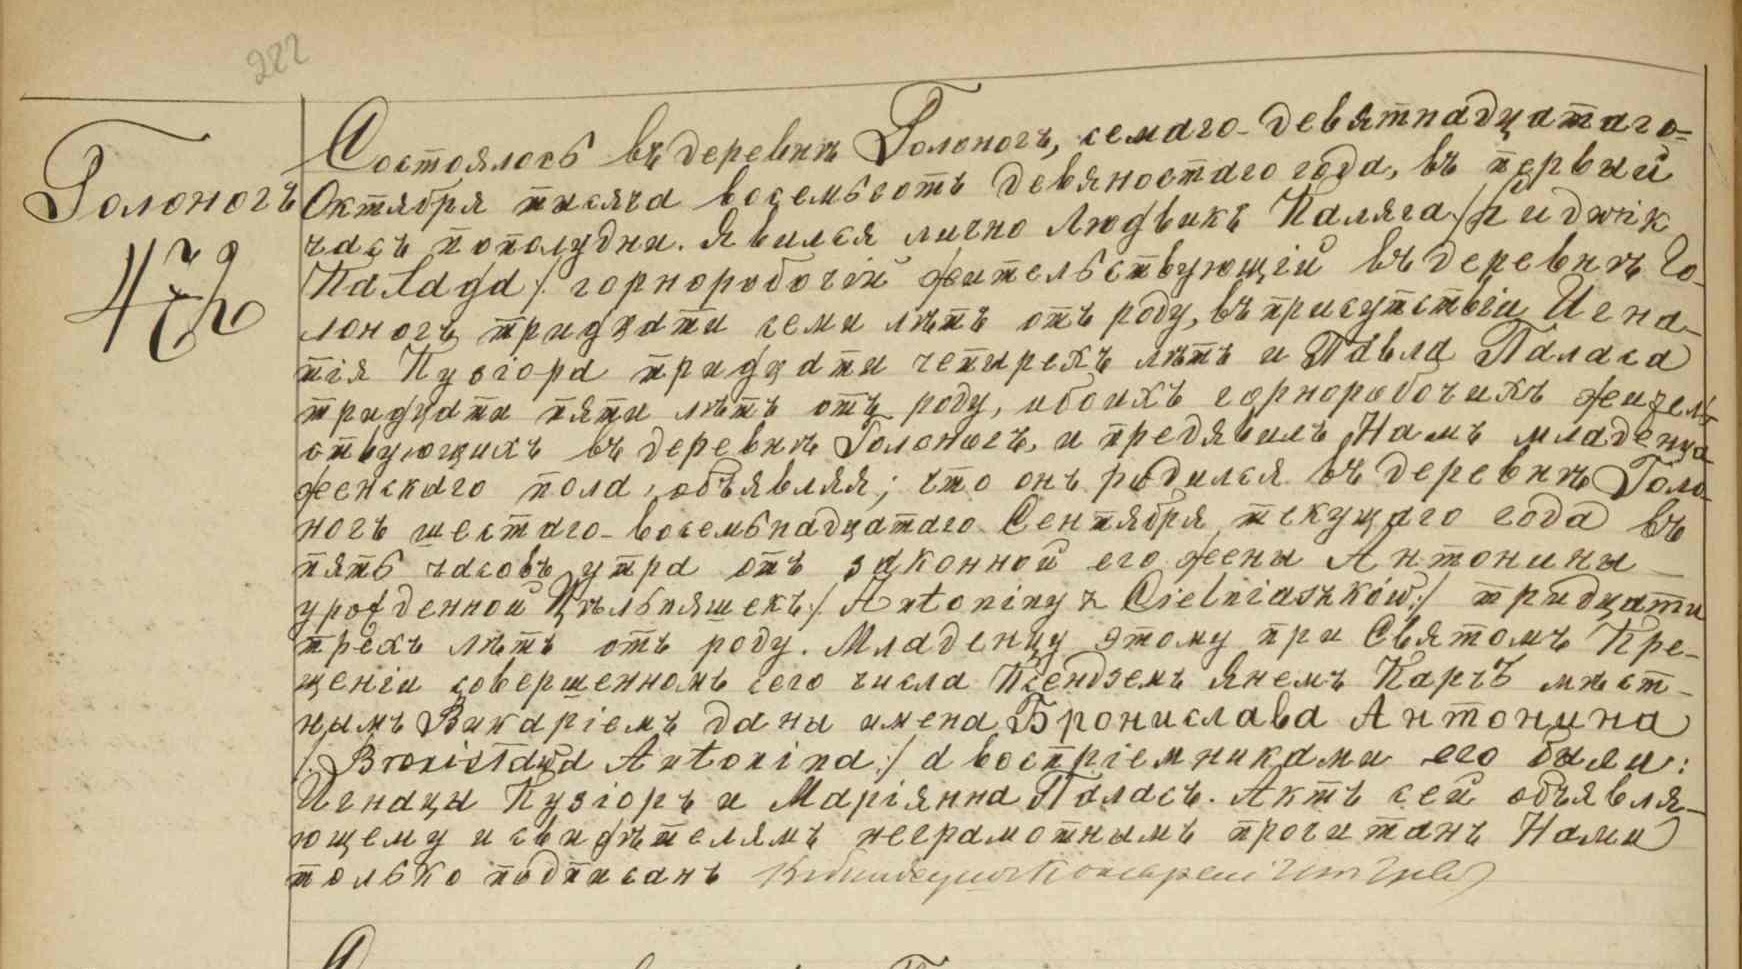 222
Голоногъ
472
Состоялось въ деревнѣ Голоногъ, седмаго-девятнадцатаго-
Октября тысяча восемьсотъ девяностаго года, въ первый
часъ пополудни. Явился лично Людвикъ Каляга /: Ludwik
Kałaga :/ горноробочій жительствующій въ деревнѣ Го-
лоногъ тридцати семи лѣтъ отъ роду, въ присутствіи Игна-
тія Пузіора тридцати четырехъ лѣтъ и Павла Паласа
тридцати пяти лѣтъ отъ роду, обоихъ горноробочихъ жител-
ствующихъ въ деревнѣ Голоногъ, и предявилъ Намъ младенца
женскаго пола, объявляя; что онъ родился въ деревнѣ Голо-
ногъ шестаго-восемьнадцатаго Сентября текущаго года въ
пять часовъ утра отъ законной его жены Антонины
урожденной Цѣльняшекъ /: Antoniny z Cielniaszków :/ тридцати
трехъ лѣтъ отъ роду. Младенцу этому при Святомъ Кре-
щеніи совершенномъ сего числа Ксендземъ Янемъ Карчъ мѣст-
нымъ Викаріемъ даны имена Бронислава Антонина
/: Bronisława Antonina :/ а воспріемниками его были:
Игнацы Пузіоръ и Маріянна Паласъ. Актъ сей объявля-
ющему и свидѣтелямъ неграмотнымъ прочитанъ Нами
только подписанъ